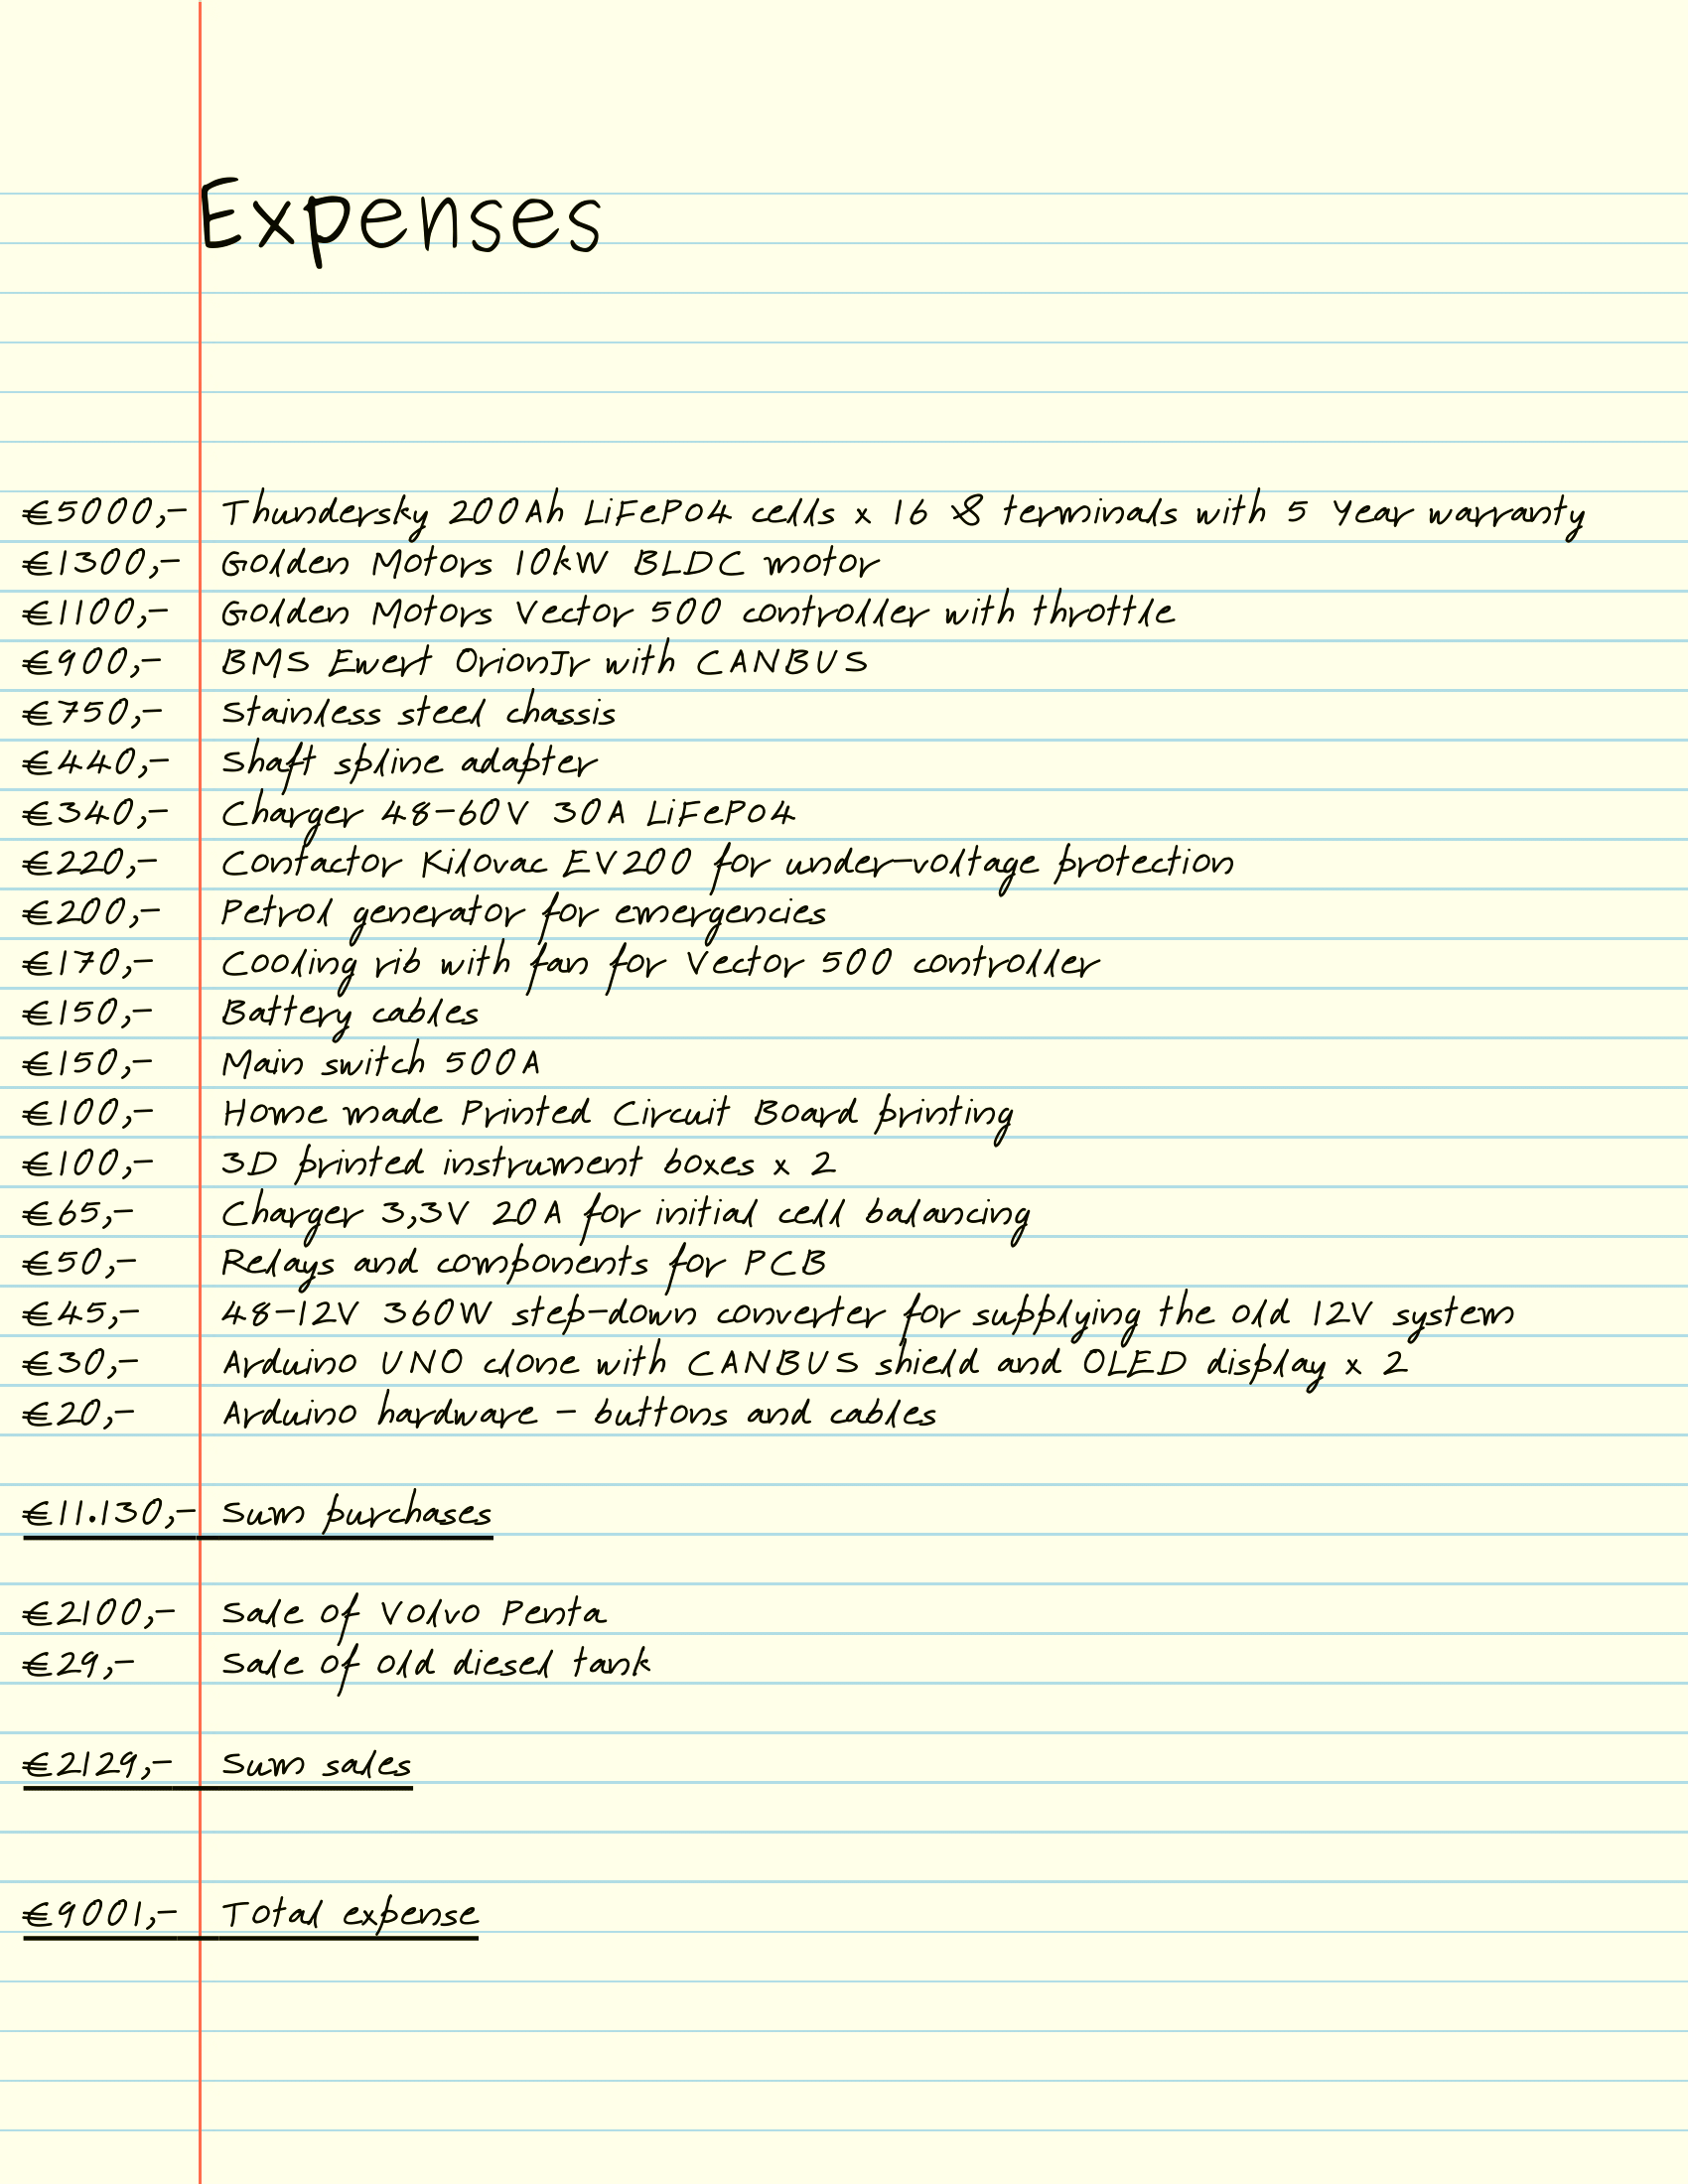 Expenses
€5000,- Thundersky 200Ah LiFePO4 cells x 16 & terminals with 5 Year warranty
€1300,- Golden Motors 10kW BLDC motor
€1100,- Golden Motors Vector 500 controller with throttle
€900,- BMS Ewert OrionJr with CANBUS
€750,- Stainless steel chassis
€440,- Shaft spline adapter
€340,- Charger 48-60V 30A LiFePO4
€220,- Contactor Kilovac EV200 for under-voltage protection
€200,- Petrol generator for emergencies
€170,- Cooling rib with fan for Vector 500 controller
€150,- Battery cables
€150,- Main switch 500A
€100,- Home made Printed Circuit Board printing
€100,- 3D printed instrument boxes x 2
€65,- Charger 3,3V 20A for initial cell balancing
€50,- Relays and components for PCB
€45,- 48-12V 360W step-down converter for supplying the old 12V system
€30,- Arduino UNO clone with CANBUS shield and OLED display x 2
€20,- Arduino hardware - buttons and cables
€11.130,- Sum purchases
€2100,- Sale of Volvo Penta
€29,- Sale of old diesel tank
€2129,- Sum sales
€9001,- Total expense